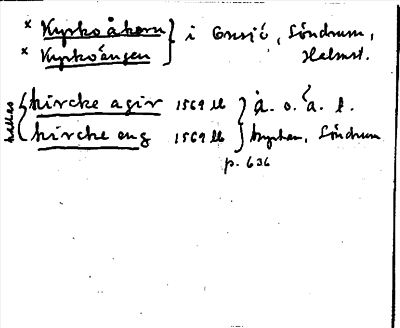 × Kyrkoåkern } i Onsjö, Söndrum,
× Kyrkoängen } Halmst.
kallas { kircke agir 1569 lb } å. o. a. l.
kircke eng 1569 lb } kyrkan, Söndrum
p. 636